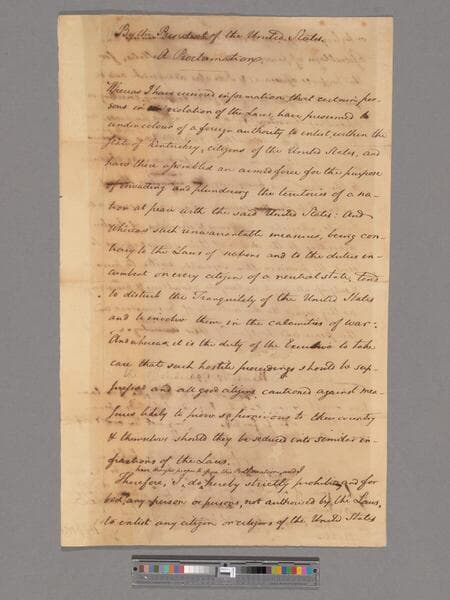 By the President of the United States.
A Proclamation.
Whereas I have received information that certain per-
sons in violation of the Laws, have presumed to
under colour of a foreign authority to enlist, within the
State of Kentuckey, citizens of the United States, and
have there assembled an armed force for the purpose
of invading and plundering the territories of a na-
tion at peace with the said United States: And
Whereas such unwarrantable measures, being con-
trary to the Laws of nations and to the duties in-
cumbent on every citizen of a neutral state, tend
to disturb the Tranquility of the United States
and to involve them in the calamities of war:
And whereas it is the duty of the Executive to take
care that such hostile proceedings should be sup-
pressed and all good citizens cautioned against mea-
sures likely to prove so pernicious to their country
& themselves should they be seduced into similar in-
fractions of the Laws.
have thought proper to issue this Proclamation and I
Therefore, I do hereby strictly prohibit and for
bid any person or persons, not authorised by the Laws,
to enlist any citizen or citizens of the United States